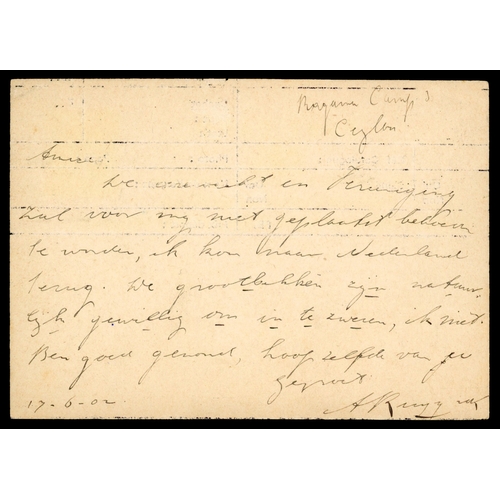 Ragama Camp 3
Ceylon.
Amice.
De en Vereeniging
zal voor mij niet geplaatst behoeven
te worden, ik kom naar Nederland
terug. De grootbekken zijn natuur-
lijk gewillig om in te zweren, ik niet.
Ben goed gezond, hoop zelfde van je
gegroet
17-6-02